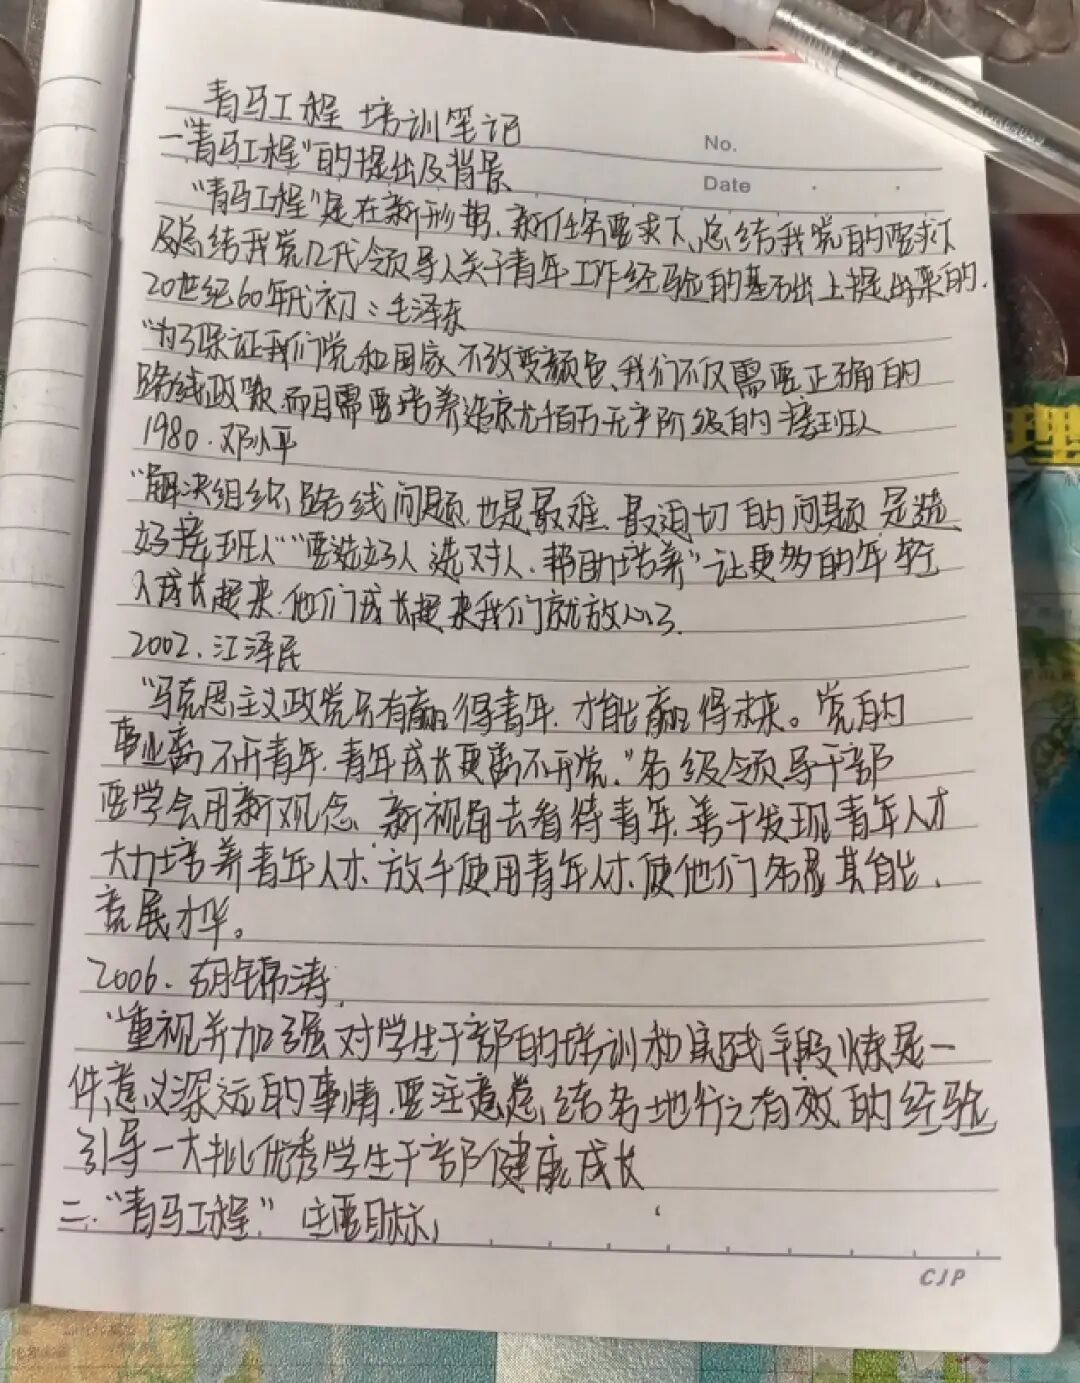 青马工程 培训笔记
No.
一"青马工程"的提出及背景
Date
"青马工程"是在新形势、新任务要求下、总结我党的要求下
及总结我党几代领导人关于青年工作经验的基础上提出来的.
20世纪60年代初：毛泽东
"为了保证我们党和国家不改变颜色、我们不仅需要正确的
路线政策,而且需要培养造就千百万无产阶级的接班人
1980.邓小平
"解决组织路线问题,也是最难、最迫切的问题是选
好接班人""要选好人 选对人、帮助培养"让更多的年轻
人成长起来.他们成长起来我们就放心了.
2002.江泽民
"马克思主义政党只有赢得青年,才能赢得未来。党的
事业离不开青年.青年成长更离不开党."各级领导干部
要学会用新观念、新视角去看待青年.善于发现青年人才
大力培养青年人才、放手使用青年人才,使他们 其能、
展才华。
2006.胡锦涛.
"重视并加强对学生干部的培训和实践锻炼是一
件意义深远的事情,要注意总结各地行之有效的经验
引导一大批优秀学生干部健康成长
二."青马工程." 主要目标
CJP
理